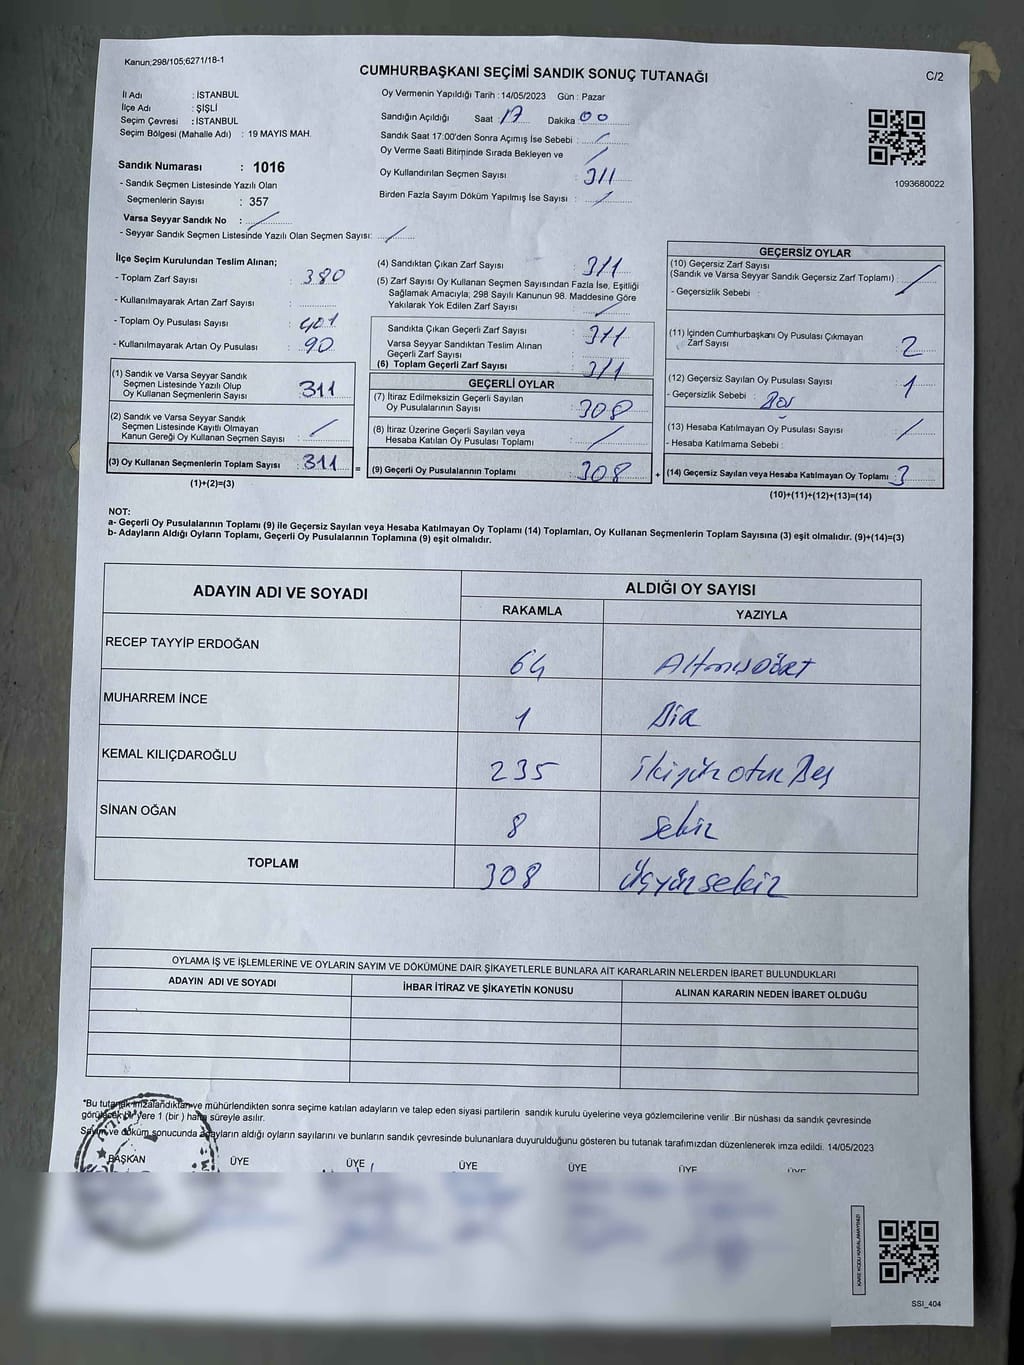 Kanun;298/105;6271/18-1
CUMHURBAŞKANI SEÇİMİ SANDIK SONUÇ TUTANAĞI
C/2
İl Adı : İSTANBUL
İlçe Adı : ŞİŞLİ
Seçim Çevresi : İSTANBUL
Seçim Bölgesi (Mahalle Adı) : 19 MAYIS MAH.
Sandık Numarası : 1016
- Sandık Seçmen Listesinde Yazılı Olan
Seçmenlerin Sayısı : 357
Varsa Seyyar Sandık No : /
- Seyyar Sandık Seçmen Listesinde Yazılı Olan Seçmen Sayısı: /
Oy Vermenin Yapıldığı Tarih : 14/05/2023 Gün : Pazar
Sandığın Açıldığı Saat 17 Dakika 00
Sandık Saat 17:00'den Sonra Açımış İse Sebebi : /
Oy Verme Saati Bitiminde Sırada Bekleyen ve /
Oy Kullandırılan Seçmen Sayısı : 311
Birden Fazla Sayım Döküm Yapılmış İse Sayısı : /
1093680022
İlçe Seçim Kurulundan Teslim Alınan;
- Toplam Zarf Sayısı : 380
- Kullanılmayarak Artan Zarf Sayısı :
- Toplam Oy Pusulası Sayısı : 401
- Kullanılmayarak Artan Oy Pusulası : 90
(1) Sandık ve Varsa Seyyar Sandık
Seçmen Listesinde Yazılı Olup
Oy Kullanan Seçmenlerin Sayısı : 311
(2) Sandık ve Varsa Seyyar Sandık
Seçmen Listesinde Kayıtlı Olmayan
Kanun Gereği Oy Kullanan Seçmen Sayısı : /
(3) Oy Kullanan Seçmenlerin Toplam Sayısı : 311 =
(1)+(2)=(3)
(4) Sandıktan Çıkan Zarf Sayısı : 311
(5) Zarf Sayısı Oy Kullanan Seçmen Sayısından Fazla İse, Eşitliği
Sağlamak Amacıyla; 298 Sayılı Kanunun 98. Maddesine Göre
Yakılarak Yok Edilen Zarf Sayısı : /
Sandıkta Çıkan Geçerli Zarf Sayısı : 311
Varsa Seyyar Sandıktan Teslim Alınan
Geçerli Zarf Sayısı :
(6) Toplam Geçerli Zarf Sayısı : 311
GEÇERLİ OYLAR
(7) İtiraz Edilmeksizin Geçerli Sayılan
Oy Pusulalarının Sayısı : 308
(8) İtiraz Üzerine Geçerli Sayılan veya
Hesaba Katılan Oy Pusulası Toplamı : /
(9) Geçerli Oy Pusulalarının Toplamı : 308 +
GEÇERSİZ OYLAR
(10) Geçersiz Zarf Sayısı
(Sandık ve Varsa Seyyar Sandık Geçersiz Zarf Toplamı) : /
- Geçersizlik Sebebi :
(11) İçinden Cumhurbaşkanı Oy Pusulası Çıkmayan
Zarf Sayısı : 2
(12) Geçersiz Sayılan Oy Pusulası Sayısı : 1
- Geçersizlik Sebebi :
(13) Hesaba Katılmayan Oy Pusulası Sayısı : /
- Hesaba Katılmama Sebebi :
(14) Geçersiz Sayılan veya Hesaba Katılmayan Oy Toplamı : 3
(10)+(11)+(12)+(13)=(14)
NOT:
a- Geçerli Oy Pusulalarının Toplamı (9) ile Geçersiz Sayılan veya Hesaba Katılmayan Oy Toplamı (14) Toplamları, Oy Kullanan Seçmenlerin Toplam Sayısına (3) eşit olmalıdır. (9)+(14)=(3)
b- Adayların Aldığı Oyların Toplamı, Geçerli Oy Pusulalarının Toplamına (9) eşit olmalıdır.
ADAYIN ADI VE SOYADI
ALDIĞI OY SAYISI
RAKAMLA YAZIYLA
RECEP TAYYİP ERDOĞAN 64 Altmışdört
MUHARREM İNCE 1 Bir
KEMAL KILIÇDAROĞLU 235 ikiyüz otuz Beş
SİNAN OĞAN 8 Sekiz
TOPLAM 308 Üçyüzsekiz
OYLAMA İŞ VE İŞLEMLERİNE VE OYLARIN SAYIM VE DÖKÜMÜNE DAİR ŞİKAYETLERLE BUNLARA AİT KARARLARIN NELERDEN İBARET BULUNDUKLARI
ADAYIN ADI VE SOYADI İHBAR İTİRAZ VE ŞİKAYETİN KONUSU ALINAN KARARIN NEDEN İBARET OLDUĞU
*Bu tutanak imzalandıktan ve mühürlendikten sonra seçime katılan adayların ve talep eden siyasi partilerin sandık kurulu üyelerine veya gözlemcilerine verilir .Bir nüshası da sandık çevresinde
görülecek bir yere 1 (bir ) hafta süreyle asılır.
Sayım ve döküm sonucunda adayların aldığı oyların sayılarını ve bunların sandık çevresinde bulunanlara duyurulduğunu gösteren bu tutanak tarafımızdan düzenlenerek imza edildi. 14/05/2023
BAŞKAN ÜYE ÜYE ÜYE ÜYE ÜYE ÜYE
KARE KODU KARALAMAYINIZ!
SSI_404